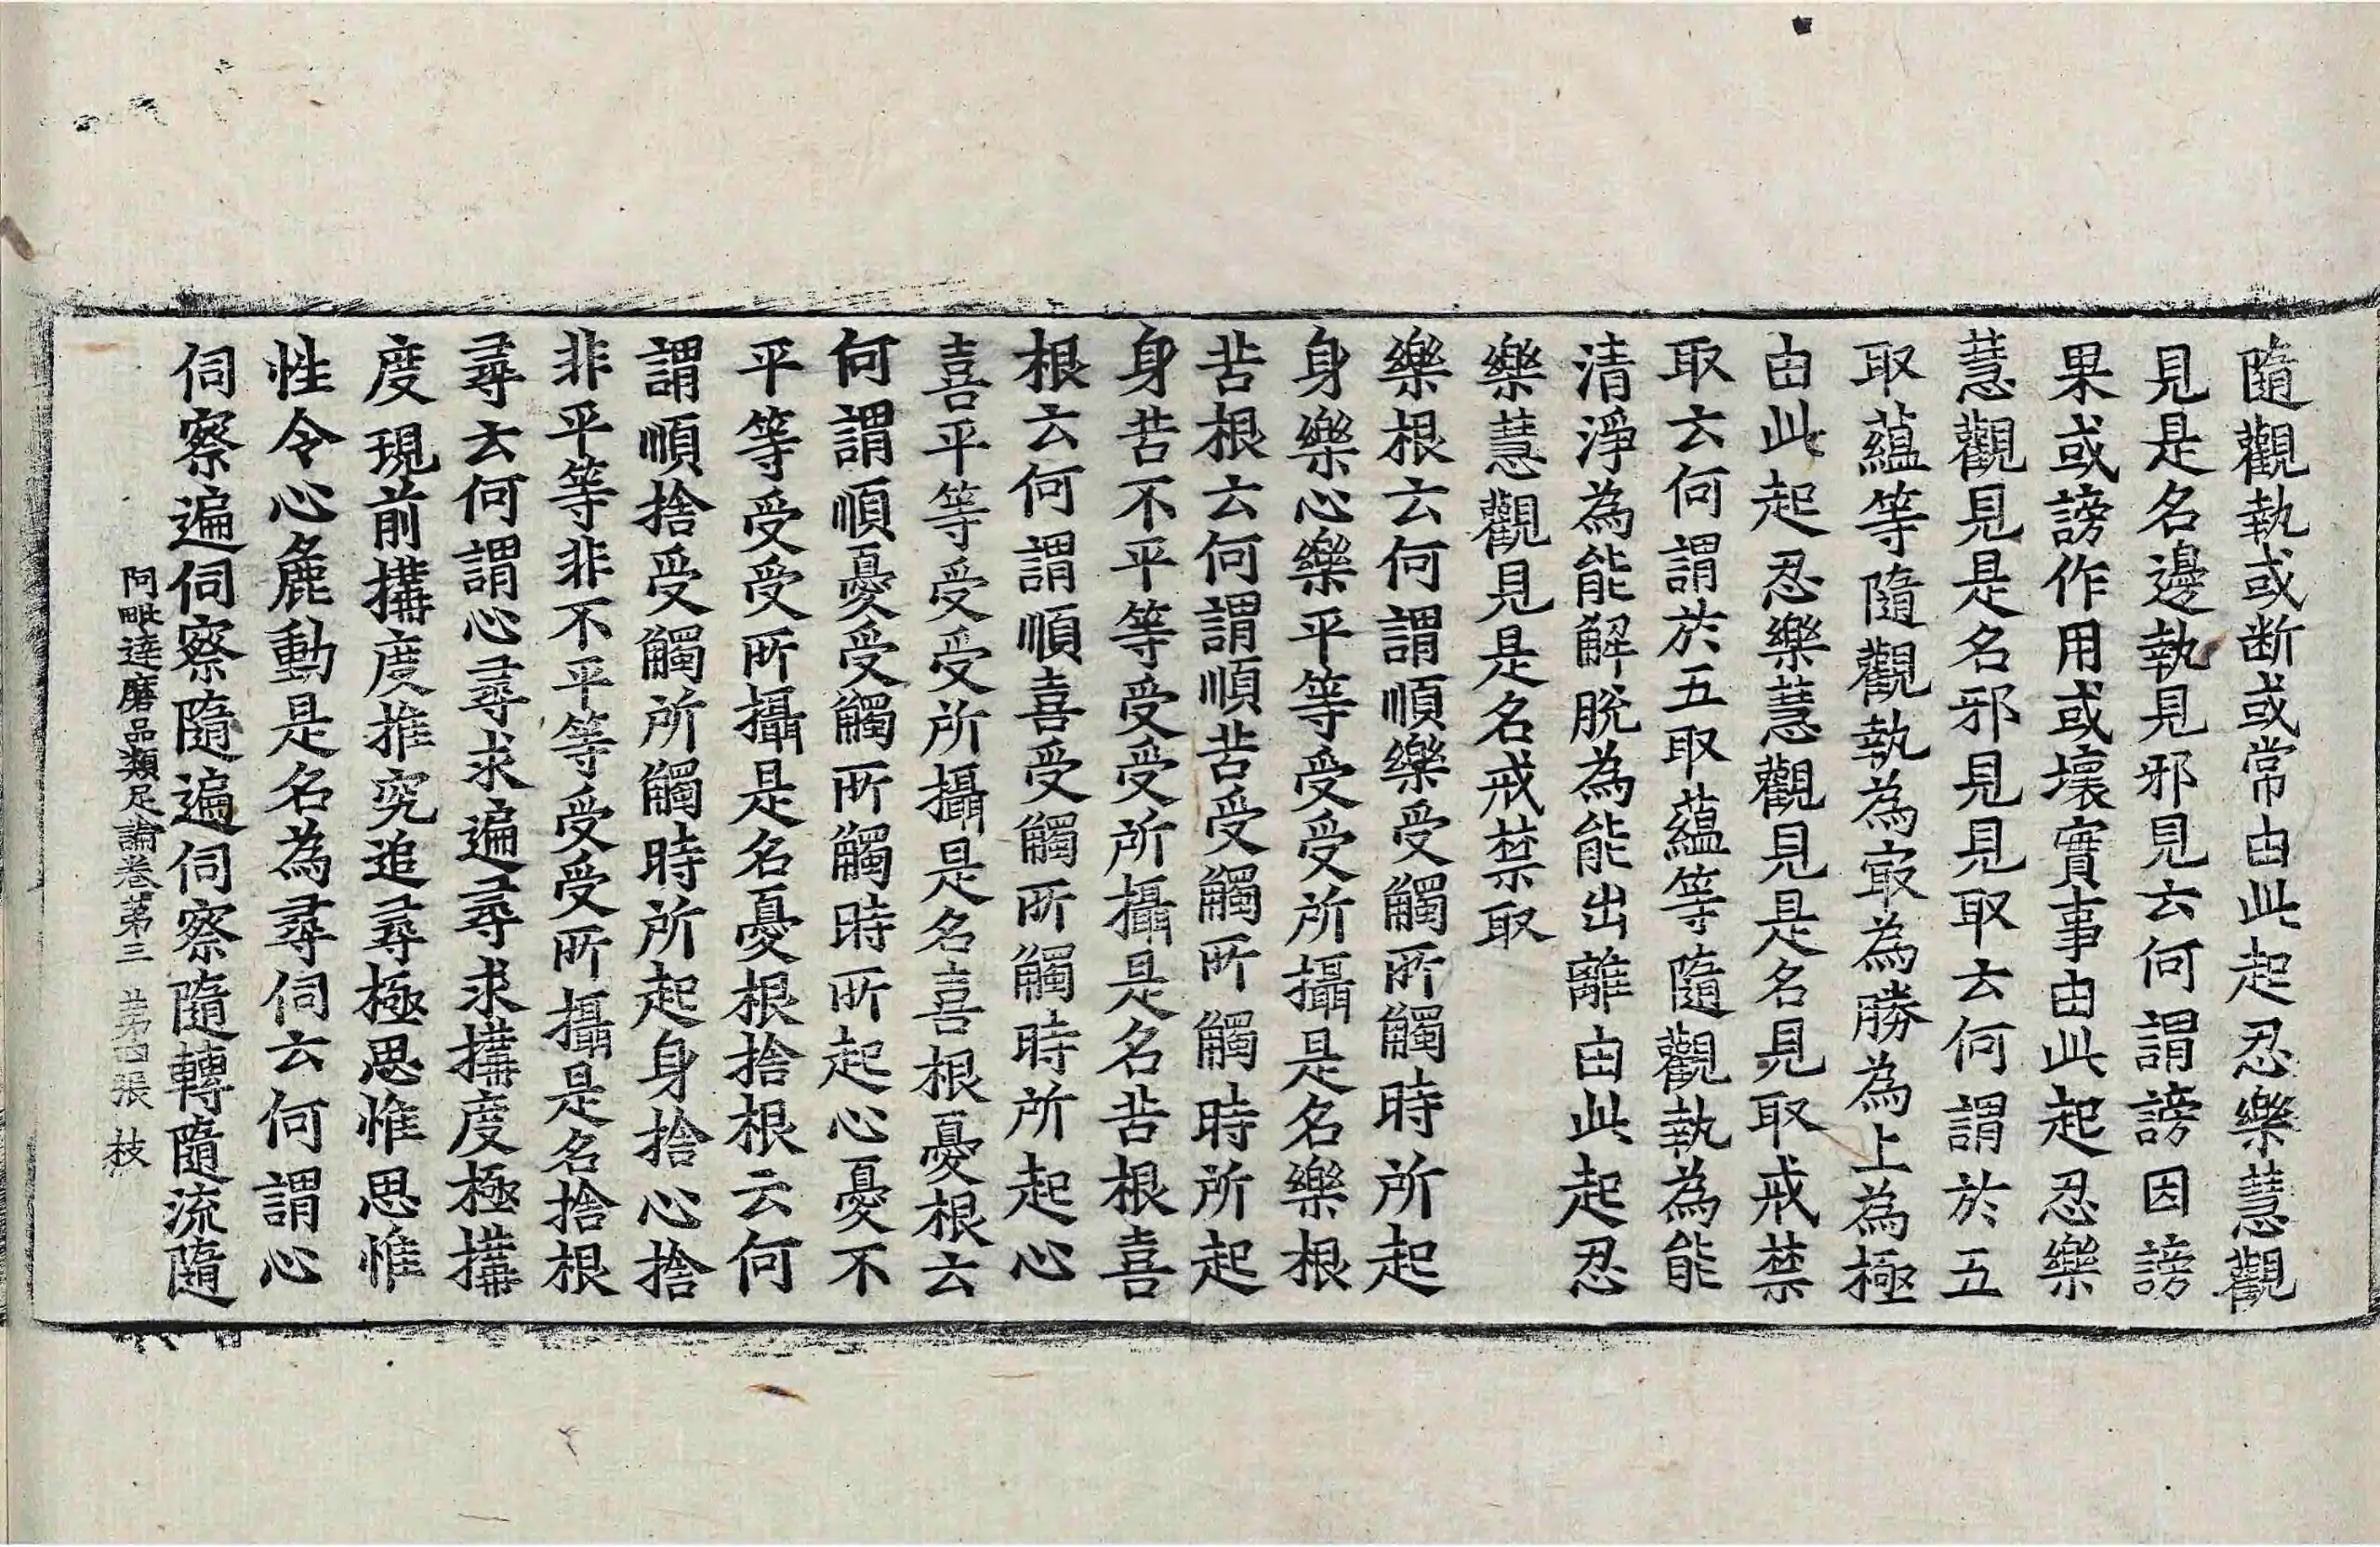 隨觀執或断或常由此起忍樂慧觀
見是名邊執見邪見云何謂謗因謗
果或謗作用或壞實事由此起忍樂
慧觀見是名邪見見取云何謂於五
取蘊等隨觀執為㝡為勝為上為極
由此起忍樂慧觀見是名見取戒禁
取云何謂於五取蘊等隨觀執為能
清淨為能解脫為能出離由此起忍
樂慧觀見是名戒禁取
樂根云何謂順樂受觸所觸時所起
身樂心樂平等受受所攝是名樂根
苦根云何謂順苦受觸所觸時所起
身苦不平等受受所攝是名苦根喜
根云何謂順喜受觸所觸時所起心
喜平等受受所攝是名喜根憂根云
何謂順憂受觸所觸時所起心憂不
平等受受所攝是名憂根捨根云何
謂順捨受觸所觸時所起身捨心捨
非平等非不平等受受所攝是名捨根
尋云何謂心尋求遍尋求搆度極搆
度現前搆度推究追尋極思惟思惟
性令心麁動是名為尋伺云何謂心
伺察遍伺察隨遍伺察隨轉隨流隨
阿毗達磨品類足論卷第三 苐四張 枝